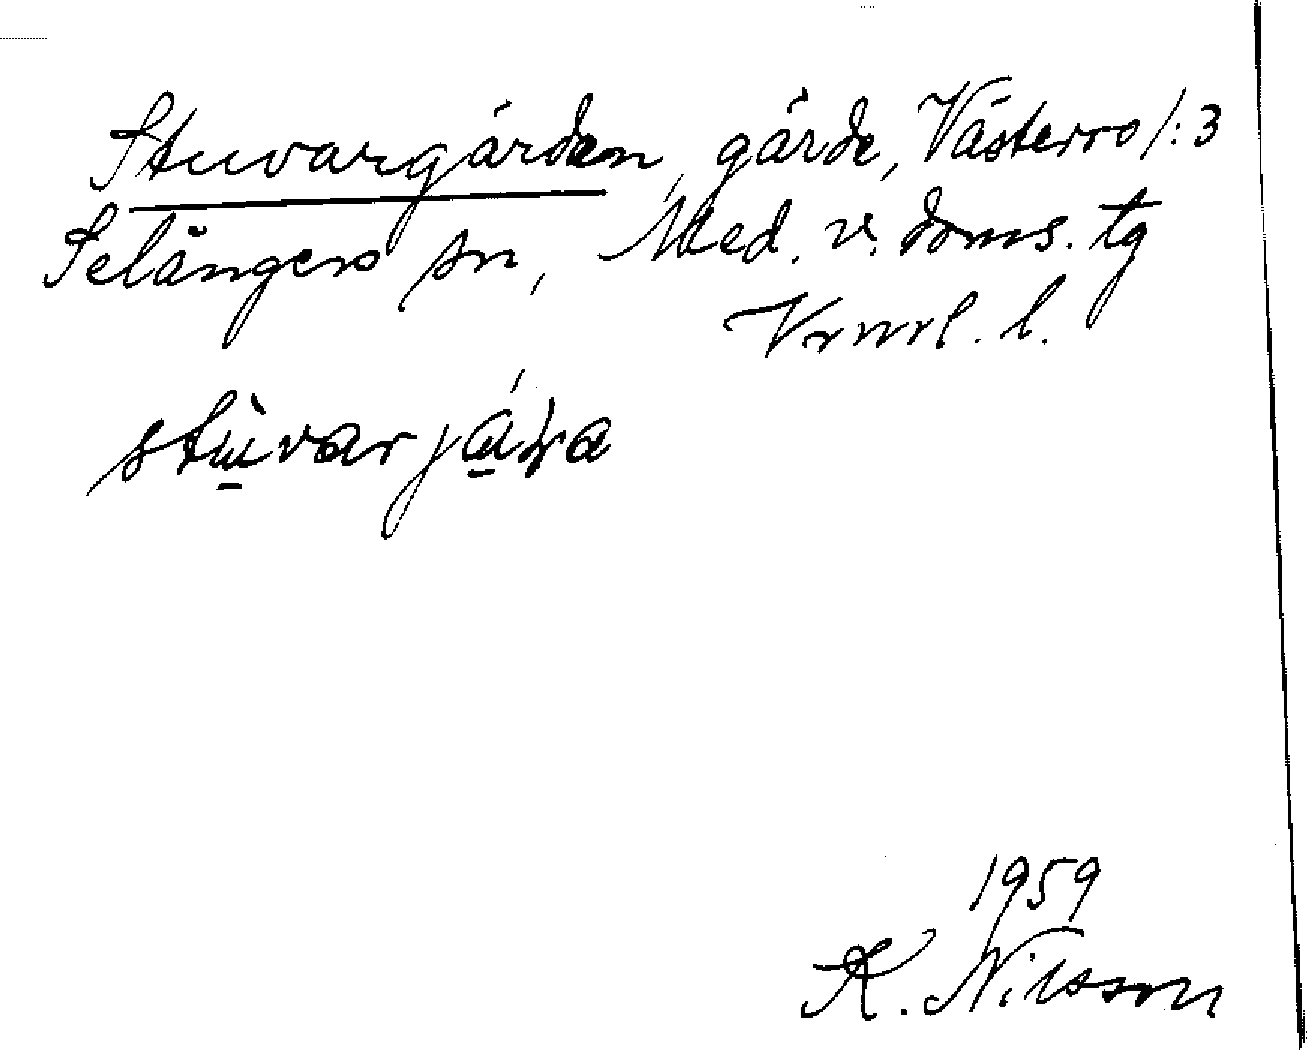 Stuvargärden, gärde, Västerro 1:3
Selångers sn, Med. v. doms. tg
Vrnrl. l.
1959
K. Nilsson